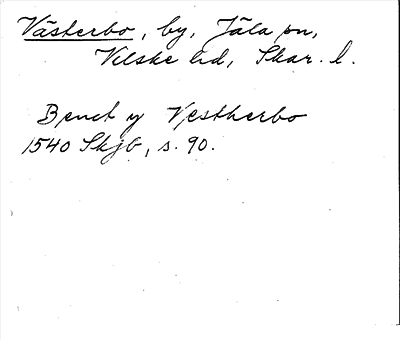 Västerbo, by, Jäla sn,
Vilske hd, Skar. l.
Benct y Vestherbo
1540 Skjb, s. 90.